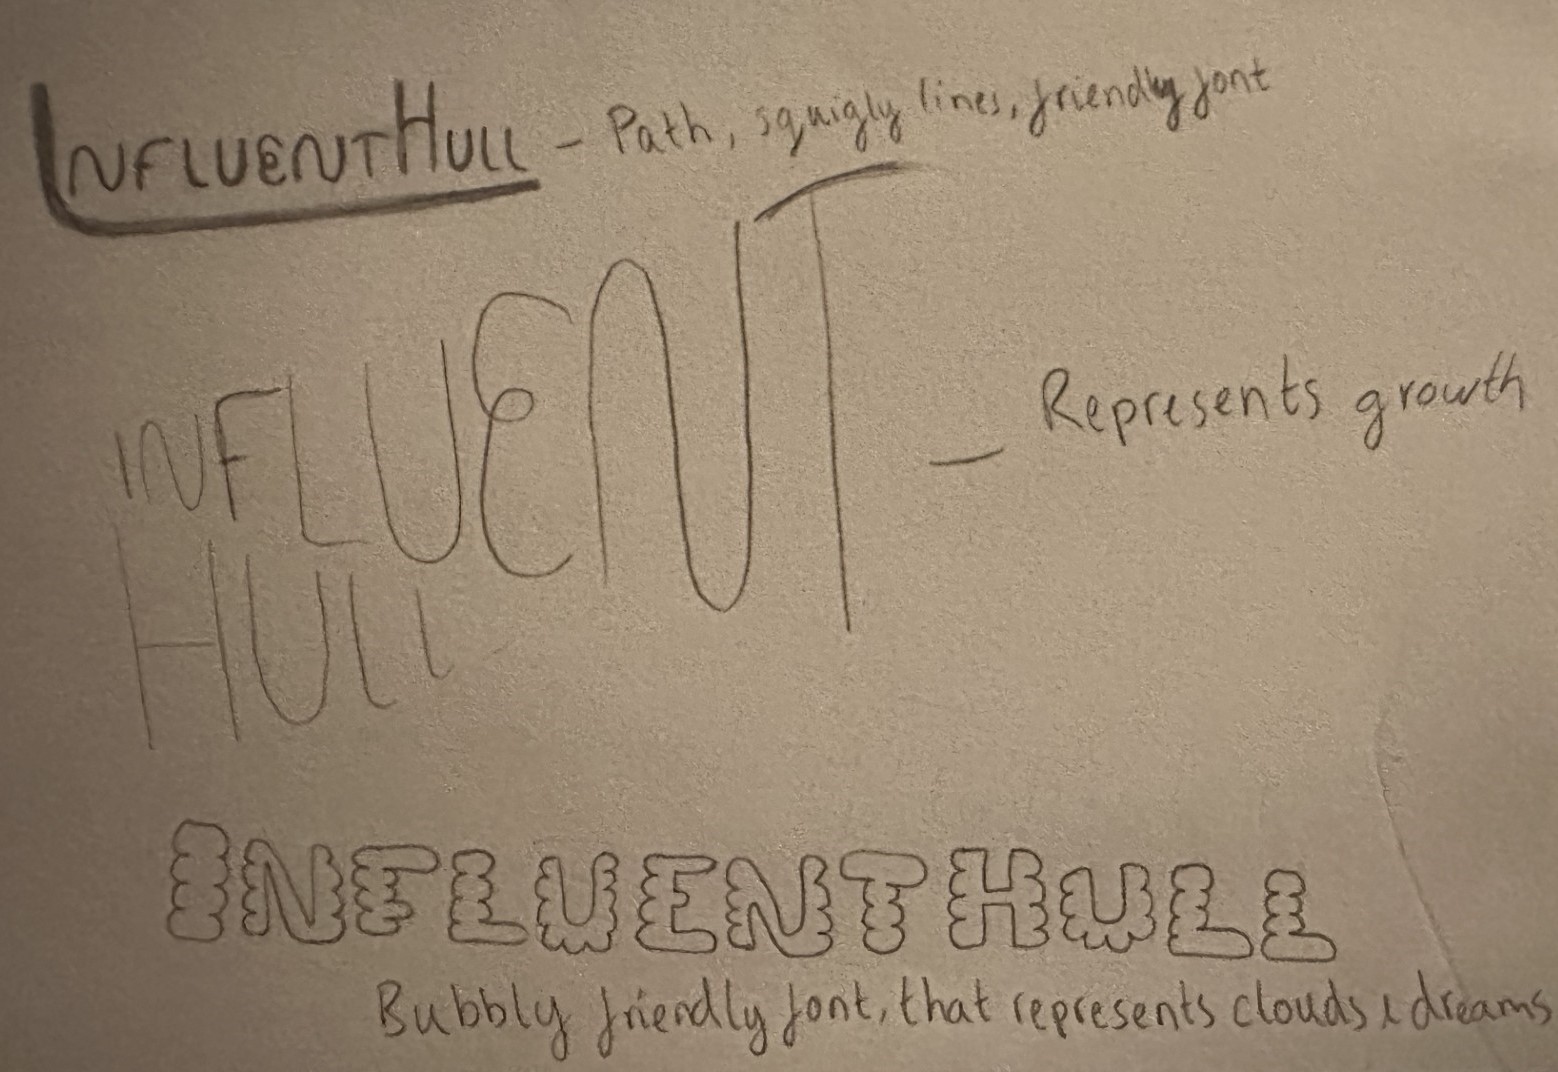 INFLUENTHULL - Path, squigly lines, friendly font
INFLUENT - Represents growth
HULL
INFLUENTHULL
Bubbly friendly font, that represents clouds & dreams